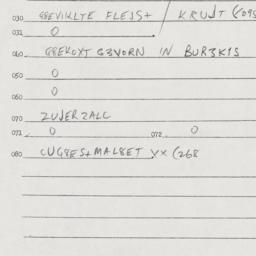 030 GGEVIKLTE FLEJS+ / KRUJT
031 0
040 GGEKOXT G3VORN IN BUR3KIS
050 0
060 0
070 ZUJERZALC
071 0 072 0
080 CUGGES+MALBET YX (268